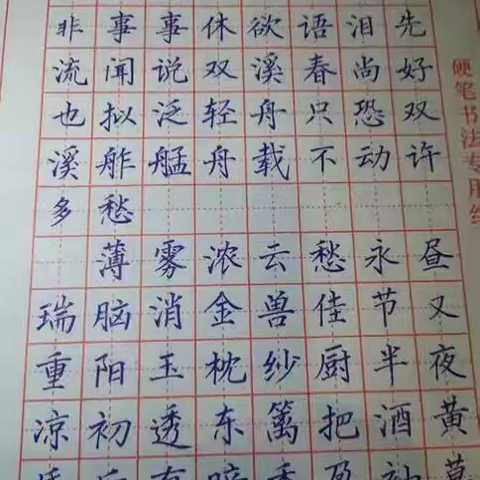 非事事休欲语泪先
流闻说双溪春尚好
也拟泛轻舟只恐双
溪舴艋舟载不动许
多愁
薄雾浓云愁永昼
瑞脑消金兽佳节又
重阳玉枕纱厨半夜
凉初透东篱把酒黄
硬笔书法专用纸